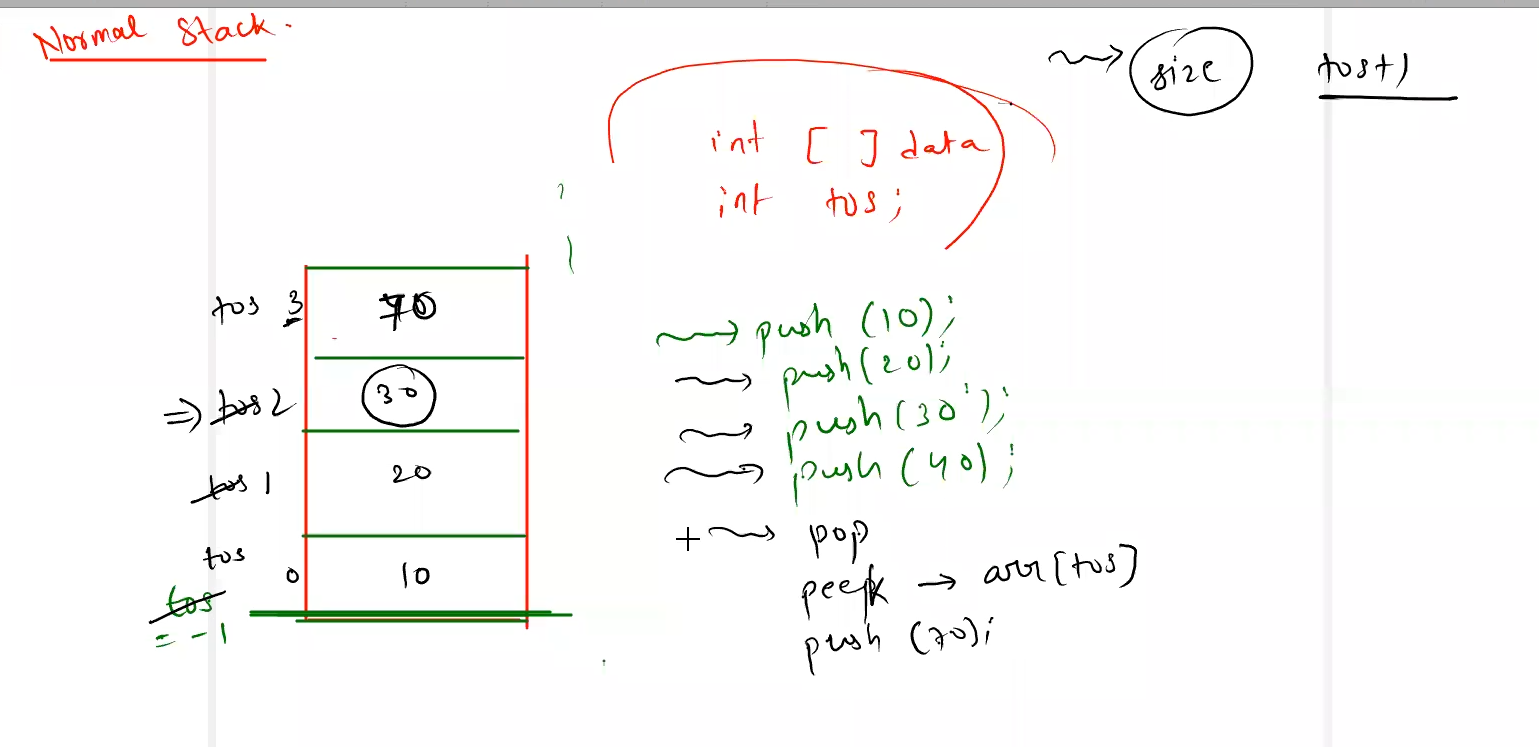 Normal Stack.
size tos+1
int [ ] data
int tos;
tos 3 70
=> tos 2 30
tos 1 20
tos 0 10
tos
= -1
push (10);
push (20);
push (30);
push (40);
pop
peek → arr[tos]
push (70);